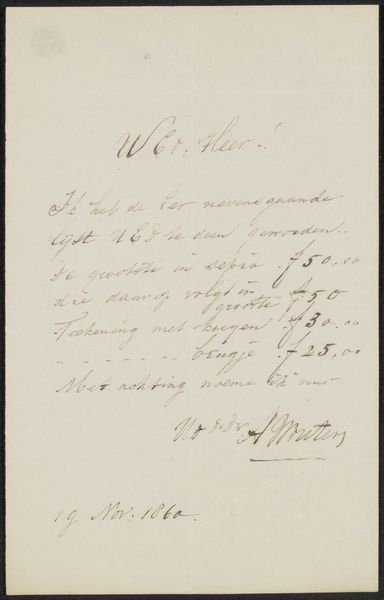 WEd. Heer!
Ik heb de Eer nevensgaande
lijst UEd te doen geworden.
De grootste in sepia . f 50,00
die daarop volgt in
grootte f 50
Teekening met koeijen . f 30.00
- - - - - - - brugje . f 25,00
Met achting noeme ik mij
UEd. Dr. A Wouters
19 Nov. 1860.